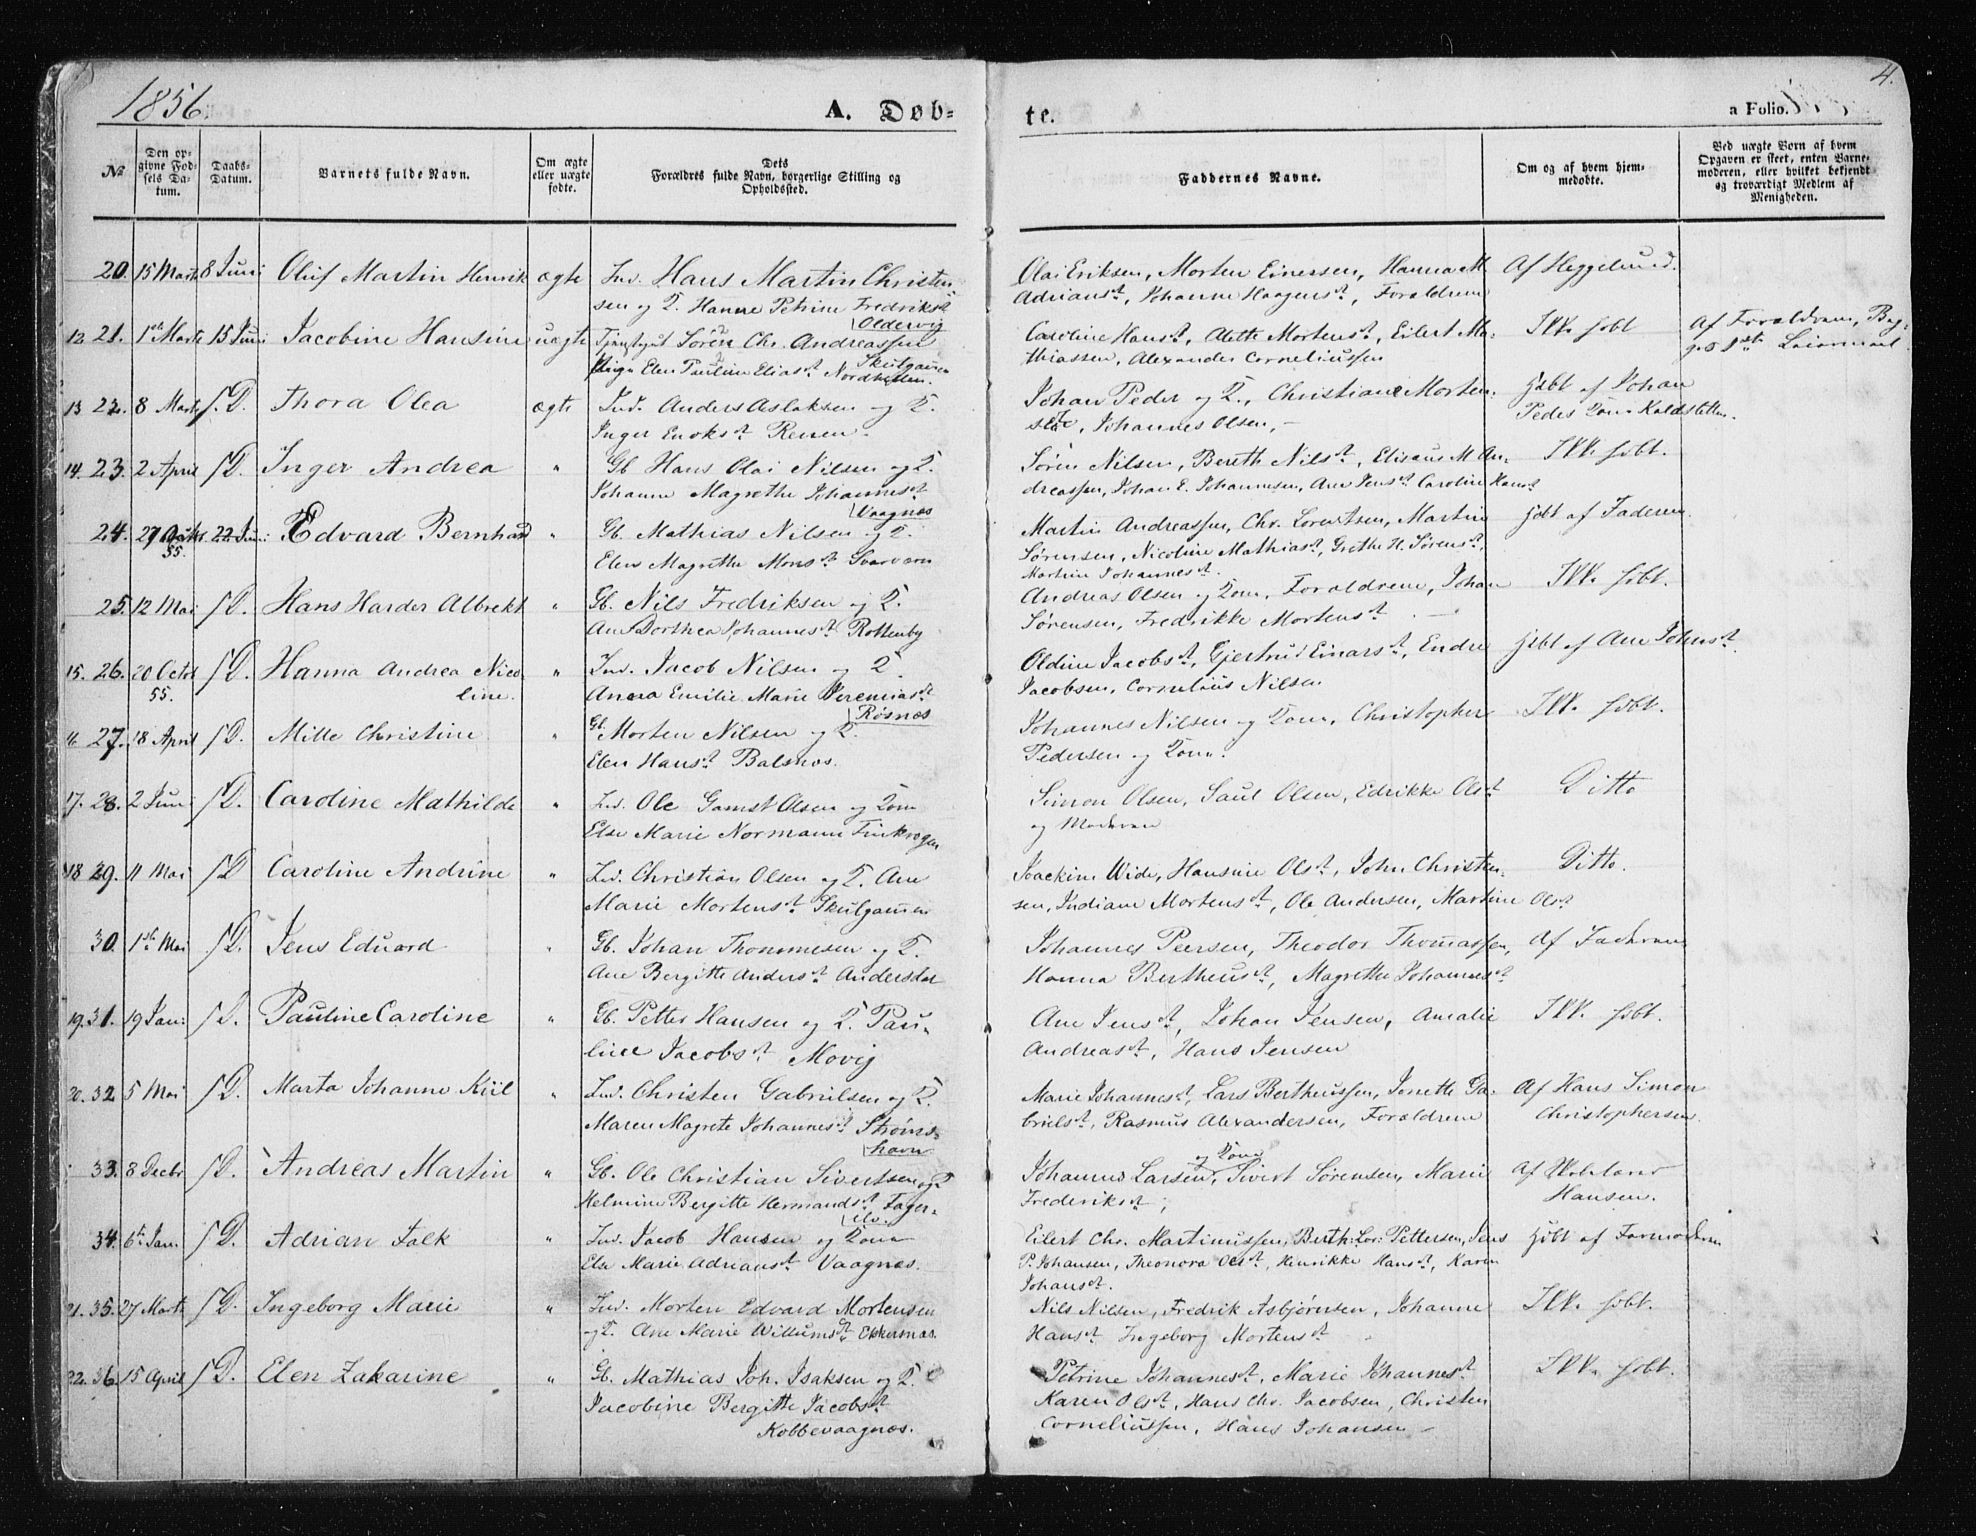 1856.
A. Døb-
te.
a Folio.
4.
№
Den op-
givne Fød-
sels Da-
tum.
Daabs-
Datum.
Barnets fulde Navn.
Om ægte
eller uægte
fødte.
Dets
Forældres fulde Navn, borgerlige Stilling og
Opholdssted.
Faddernes Navne.
Om og af hvem hjem-
medøbte.
Ved uægte Børn af hvem
Opgaven er skeet, enten Barne-
moderen, eller hvilket bekjendt
og troværdigt Medlem af
Menigheden.
20. 15 Marts 8 Juni Oluf Martin Henrik ægte Ind. Hans Martin Christen-
sen og K. Hanne Petrine Fredriksdt
Oldervig
Olai Eriksen, Morten Einersen, Hanna M
Adriansdt, Johanne Haagensdt, Forældrene
Af Heggelund.
12 21. 1ste Marts 15 Juni Jacobine Hansine uægte Tjenstkarl Sören Chr. Andreassen
Pige Elen Pauline Eliasdt Skulgammen
Nordkellen.
Caroline Hansdt, Aleth Mortensdt, Eilert Ma-
thiassen, Alexander Corneliussen
Ikk. hjbt
Af Forældrene, Beg-
ges 1ste Leiermaal
13 22. 8 Marts S.D. Thora Olea ægte Ind. Anders Aslaksen og K.
Inger Enoksdt Renen
Johan Peder og K., Christiane Morten-
sdt, Johannes Olsen, -
hjbt af Johan
Peder Kaldsletten.
14. 23. 2 April S D. Inger Andrea " Gb. Hans Olai Nilsen og K.
Johanne Magrethe Johannesdt
Vaagnæs
Søren Nilsen, Bereth Nilsdt, Eliseus M An-
dreassen, Johan E. Johannesen, Ane Jensdt Caroline Hansdt
Ikk. hjbt.
24. 29 Octbr 22 Juni Edvard Bernhard " Gb. Mathias Nilsen og K.
55.
Elen Magrethe Monsdt Svarvaren
Martin Andreassen, Chr. Lorentsen, Martin
Sørensen, Nicoline Mathiasdt, Grethe H. Sørensdt,
Martine Johannesdt.
hjbt af Faderen.
25. 12 Mai S D. Hans Harder Albrekt " Gb. Nils Fredriksen og K.
Ane Dorthea Johannesdt Rottenby
Andreas Olsen og Kone, Forældrene, Johan
Sørensen, Fredrikke Mortensdt
Ikk. hjbt.
15. 26. 20 Octbr S D. Hanna Andrea Nico- " Ind. Jacob Nilsen og K
55. line.
Anna Emilie Marie Jeremiasdt
Røsnæs
Oldine Jacobsdt, Gjertrud Einarsdt, Endre
Jacobsen, Cornelius Nilsen
hjbt af Ane Johnsdt
16 27. 18 April S D. Mille Christine " Gb. Morten Nilsen og K.
Elen Hansdt Balsnæs.
Johannes Nilsen og Kone, Christopher
Pedersen og Kone.
Ikk. hjbt.
17. 28. 2 Juni S D. Caroline Mathilde " Ind. Ole Gamst Olsen og Kone
Else Marie Normann Finkrogen
Simon Olsen, Saul Olsen, Edrikke Olsdt
og Moderen
Ditto
18 29. 11 Mai S D Caroline Andrine " Ind. Christian Olsen og K. Ane
Marie Mortensdt Skulgammen
Joackim Wide, Hansine Olsdt, John Christen-
sen, Indiane Mortensdt, Ole Andersen, Martine Olsdt
Ditto.
30. 1ste Mai S D. Jens Eduard " Gb. Johan Thommesen og K.
Ane Bergitte Andersdt Andersdal
Johannes Peersen, Theodor Thomassen,
Hanna Bertheusdt, Magrethe Johannesdt
Af Faderen
19. 31. 19 Jani S D. Pauline Caroline " Gb. Petter Hansen og K. Pau-
line Jacobsdt Movig
Ane Jensdt, Johan Jensen, Amalie
Andreasdt, Hans Jensen
Ikk. hjbt.
20. 32. 5 Mai S D. Marta Johanne Kiil " Ind. Christen Gabrielsen og K.
Maren Magrete Johannesdt Strøms-
havn
Marie Johannesdt, Lars Bertheussen, Jenette Ga-
brielsdt, Rasmus Alexandersen, Forældrene
Af Hans Simon
Christophersen.
33. 8 Decbr S D. Andreas Martin " Gb. Ole Christian Sivertsen og K
Helmine Bergitte Hermandsdt Fager-
elv.
og Kone
Johannes Larsen, Sivert Sørensen, Marie
Frederiksdt;
Af Skolelærer
Hansen.
34. 6te Jan. S D. Adrian Falk " Ind. Jacob Hansen og Kone
Else Marie Adriansdt Vaagnæs.
Eilert Chr. Martinussen, Berth. Lor. Pettersen, Jens
P. Johansen, Theonora Olsdt, Henrikke Hansdt, Karen
Johansdt.
hjbt af Farmoderen
21. 35. 27 Marts S D. Ingeborg Marie " Ind. Morten Edvard Mortensen
og K. Ane Marie Willumsdt Ekkernæs.
Nils Nilsen, Fredrik Asbjørnsen, Johanne
Hansdt Ingeborg Mortensdt
Ikk. hjbt.
22. 36. 15 April S D. Elen Zakarine " Gb. Mathias Joh. Isaksen og K.
Jacobine Bergitte Jacobsdt
Kobbevaagnæs.
Petrine Johannesdt, Marie Johannesdt
Karen Olsdt, Hans Chr. Jacobsen, Christen
Corneliussen, Hans Johansen
Ikk. hjbt.